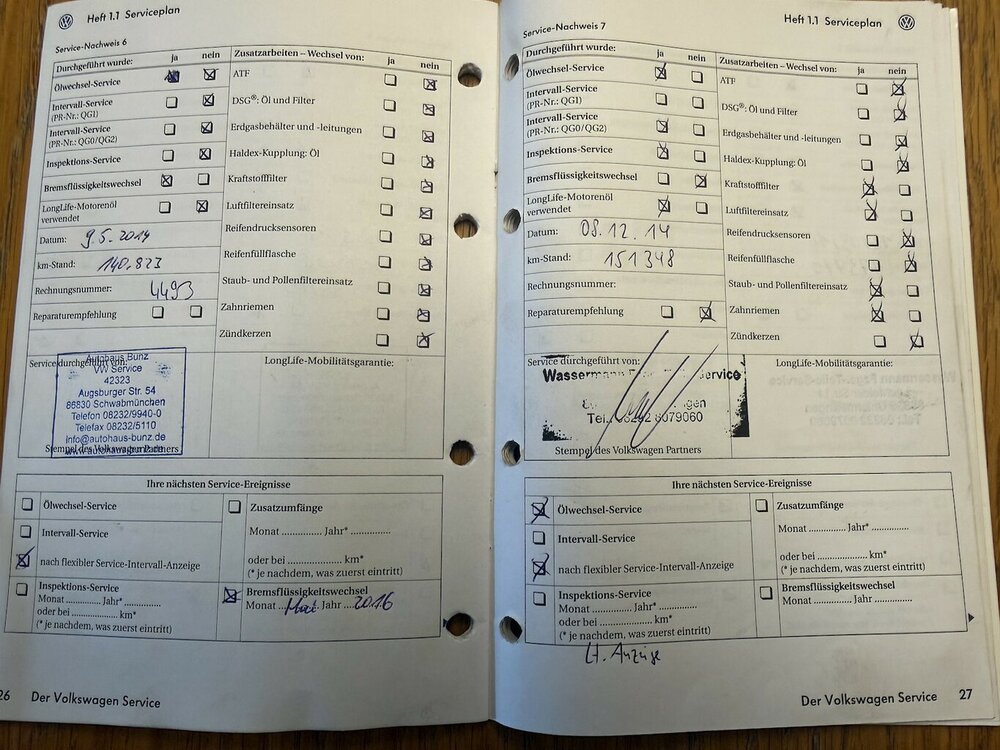 Heft 1.1 Serviceplan
Service-Nachweis 6
Durchgeführt wurde: ja nein
Ölwechsel-Service
Intervall-Service
(PR-Nr.: QG1)
Intervall-Service
(PR-Nr.: QG0/QG2)
Inspektions-Service
Bremsflüssigkeitswechsel
LongLife-Motorenöl
verwendet
Datum: 9.5.2014
km-Stand: 140.823
Rechnungsnummer: 4493
Reparaturempfehlung
Zusatzarbeiten – Wechsel von: ja nein
ATF
DSG®: Öl und Filter
Erdgasbehälter und -leitungen
Haldex-Kupplung: Öl
Kraftstofffilter
Luftfiltereinsatz
Reifendrucksensoren
Reifenfüllflasche
Staub- und Pollenfiltereinsatz
Zahnriemen
Zündkerzen
Service durchgeführt von:
Autohaus Bunz
VW Service
42323
Augsburger Str. 54
86830 Schwabmünchen
Telefon 08232/9940-0
Telefax 08232/5110
info@autohaus-bunz.de
www.autohaus-bunz.de
Stempel des Volkswagen Partners
LongLife-Mobilitätsgarantie:
Ihre nächsten Service-Ereignisse
Ölwechsel-Service
Intervall-Service
nach flexibler Service-Intervall-Anzeige
Inspektions-Service
Monat ............ Jahr* ............
oder bei ............ km*
(* je nachdem, was zuerst eintritt)
Zusatzumfänge
Monat ............ Jahr* ............
oder bei ............ km*
(* je nachdem, was zuerst eintritt)
Bremsflüssigkeitswechsel
Monat Jahr 2016
26 Der Volkswagen Service
Heft 1.1 Serviceplan
Service-Nachweis 7
Durchgeführt wurde: ja nein
Ölwechsel-Service
Intervall-Service
(PR-Nr.: QG1)
Intervall-Service
(PR-Nr.: QG0/QG2)
Inspektions-Service
Bremsflüssigkeitswechsel
LongLife-Motorenöl
verwendet
Datum: 08.12.14
km-Stand: 151348
Rechnungsnummer:
Reparaturempfehlung
Zusatzarbeiten – Wechsel von: ja nein
ATF
DSG®: Öl und Filter
Erdgasbehälter und -leitungen
Haldex-Kupplung: Öl
Kraftstofffilter
Luftfiltereinsatz
Reifendrucksensoren
Reifenfüllflasche
Staub- und Pollenfiltereinsatz
Zahnriemen
Zündkerzen
Service durchgeführt von:
Wassermann
Tel. 08232 8079060
Stempel des Volkswagen Partners
LongLife-Mobilitätsgarantie:
Ihre nächsten Service-Ereignisse
Ölwechsel-Service
Intervall-Service
nach flexibler Service-Intervall-Anzeige
Inspektions-Service
Monat ............ Jahr* ............
oder bei ............ km*
(* je nachdem, was zuerst eintritt)
Zusatzumfänge
Monat ............ Jahr* ............
oder bei ............ km*
(* je nachdem, was zuerst eintritt)
Bremsflüssigkeitswechsel
Monat ............ Jahr ............
Lt. Anzeige
Der Volkswagen Service 27